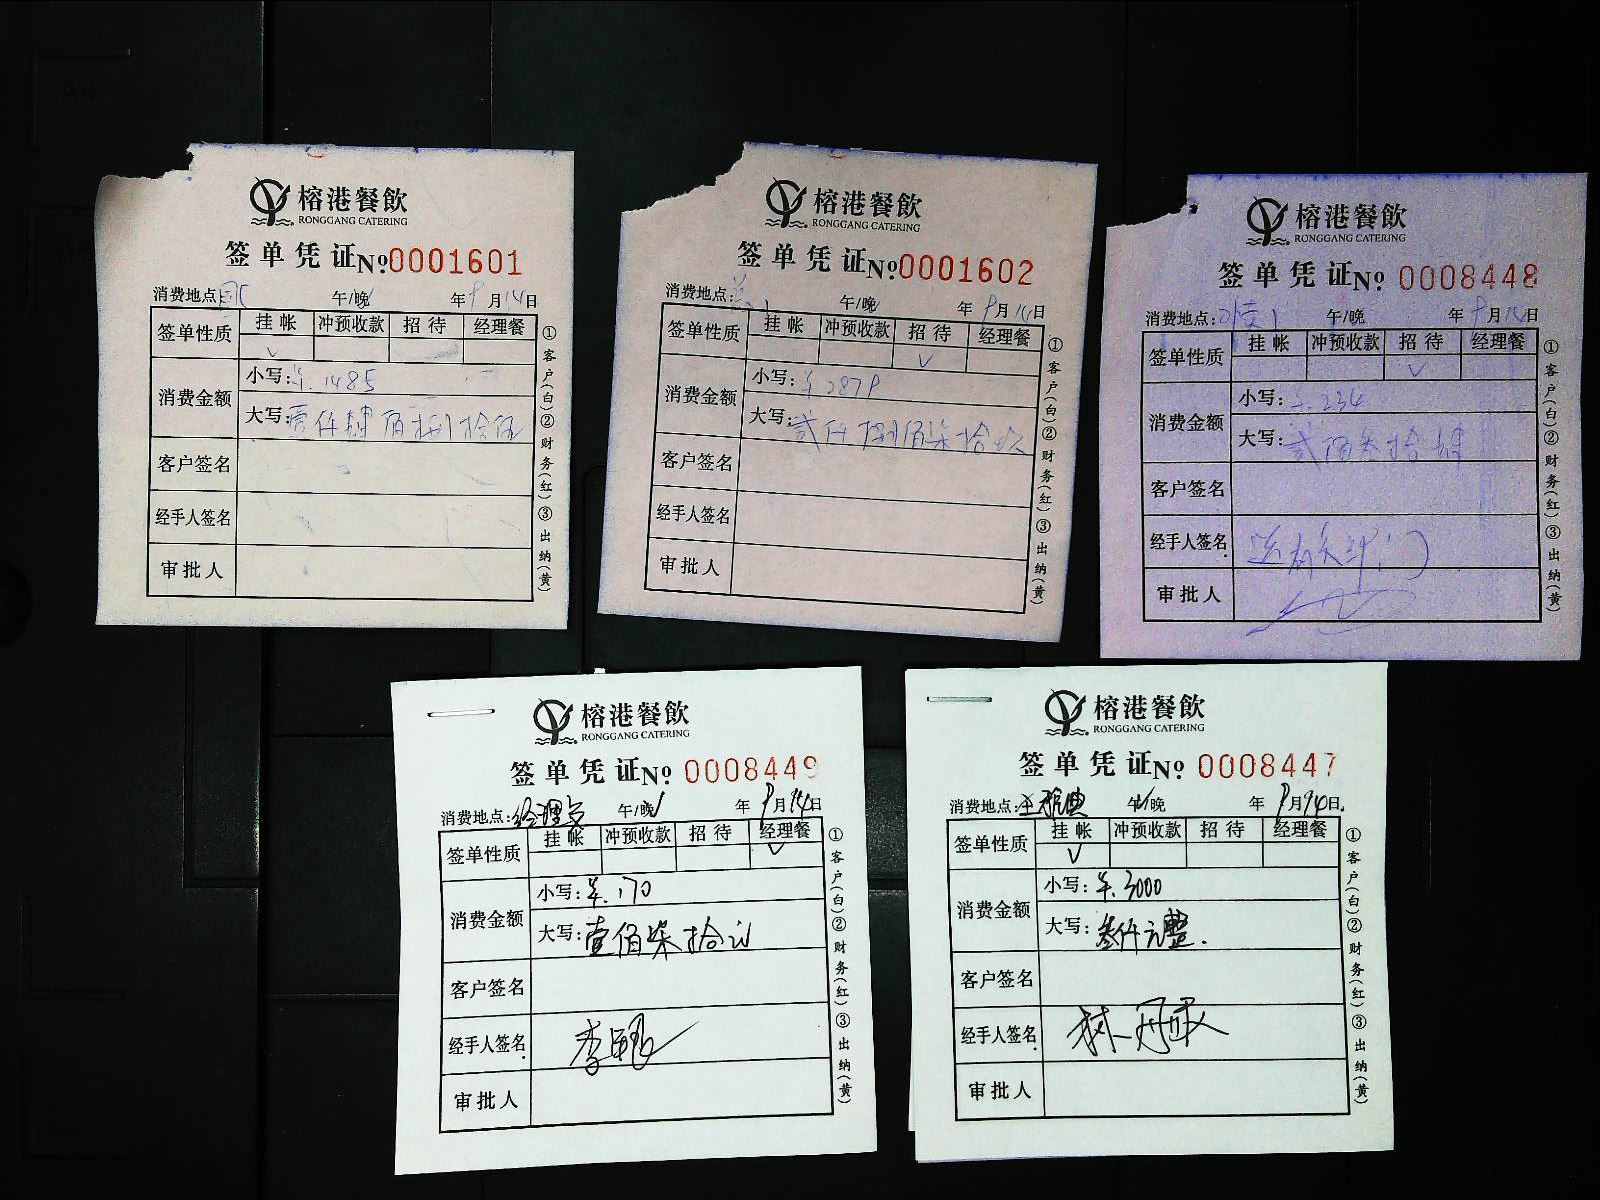 榕港餐飲
RONGGANG CATERING
签单凭证№0001601
消费地点: 午/晚 年 9月14日
签单性质 挂帐 冲预收款 招待 经理餐
√
消费金额 小写:¥.1485
大写:壹仟肆佰捌拾伍
客户签名
经手人签名
审批人
①客户(白)②财务(红)③出纳(黄)
榕港餐飲
RONGGANG CATERING
签单凭证№0001602
消费地点: 午/晚 年 9月14日
签单性质 挂帐 冲预收款 招待 经理餐
√
消费金额 小写:¥.2879
大写:贰仟捌佰柒拾玖
客户签名
经手人签名
审批人
①客户(白)②财务(红)③出纳(黄)
榕港餐飲
RONGGANG CATERING
签单凭证№0008448
消费地点: 午/晚 年 9月14日
签单性质 挂帐 冲预收款 招待 经理餐
√
消费金额 小写:¥.234
大写:贰佰叁拾肆
客户签名
经手人签名
审批人
①客户(白)②财务(红)③出纳(黄)
榕港餐飲
RONGGANG CATERING
签单凭证№0008449
消费地点:经理 午/晚 年 9月14日
签单性质 挂帐 冲预收款 招待 经理餐
√
消费金额 小写:¥.170
大写:壹佰柒拾元
客户签名
经手人签名 李
审批人
①客户(白)②财务(红)③出纳(黄)
榕港餐飲
RONGGANG CATERING
签单凭证№0008447
消费地点: 午/晚 年 9月14日.
签单性质 挂帐 冲预收款 招待 经理餐
√
消费金额 小写:¥.3000
大写:叁仟元整.
客户签名
经手人签名 林
审批人
①客户(白)②财务(红)③出纳(黄)